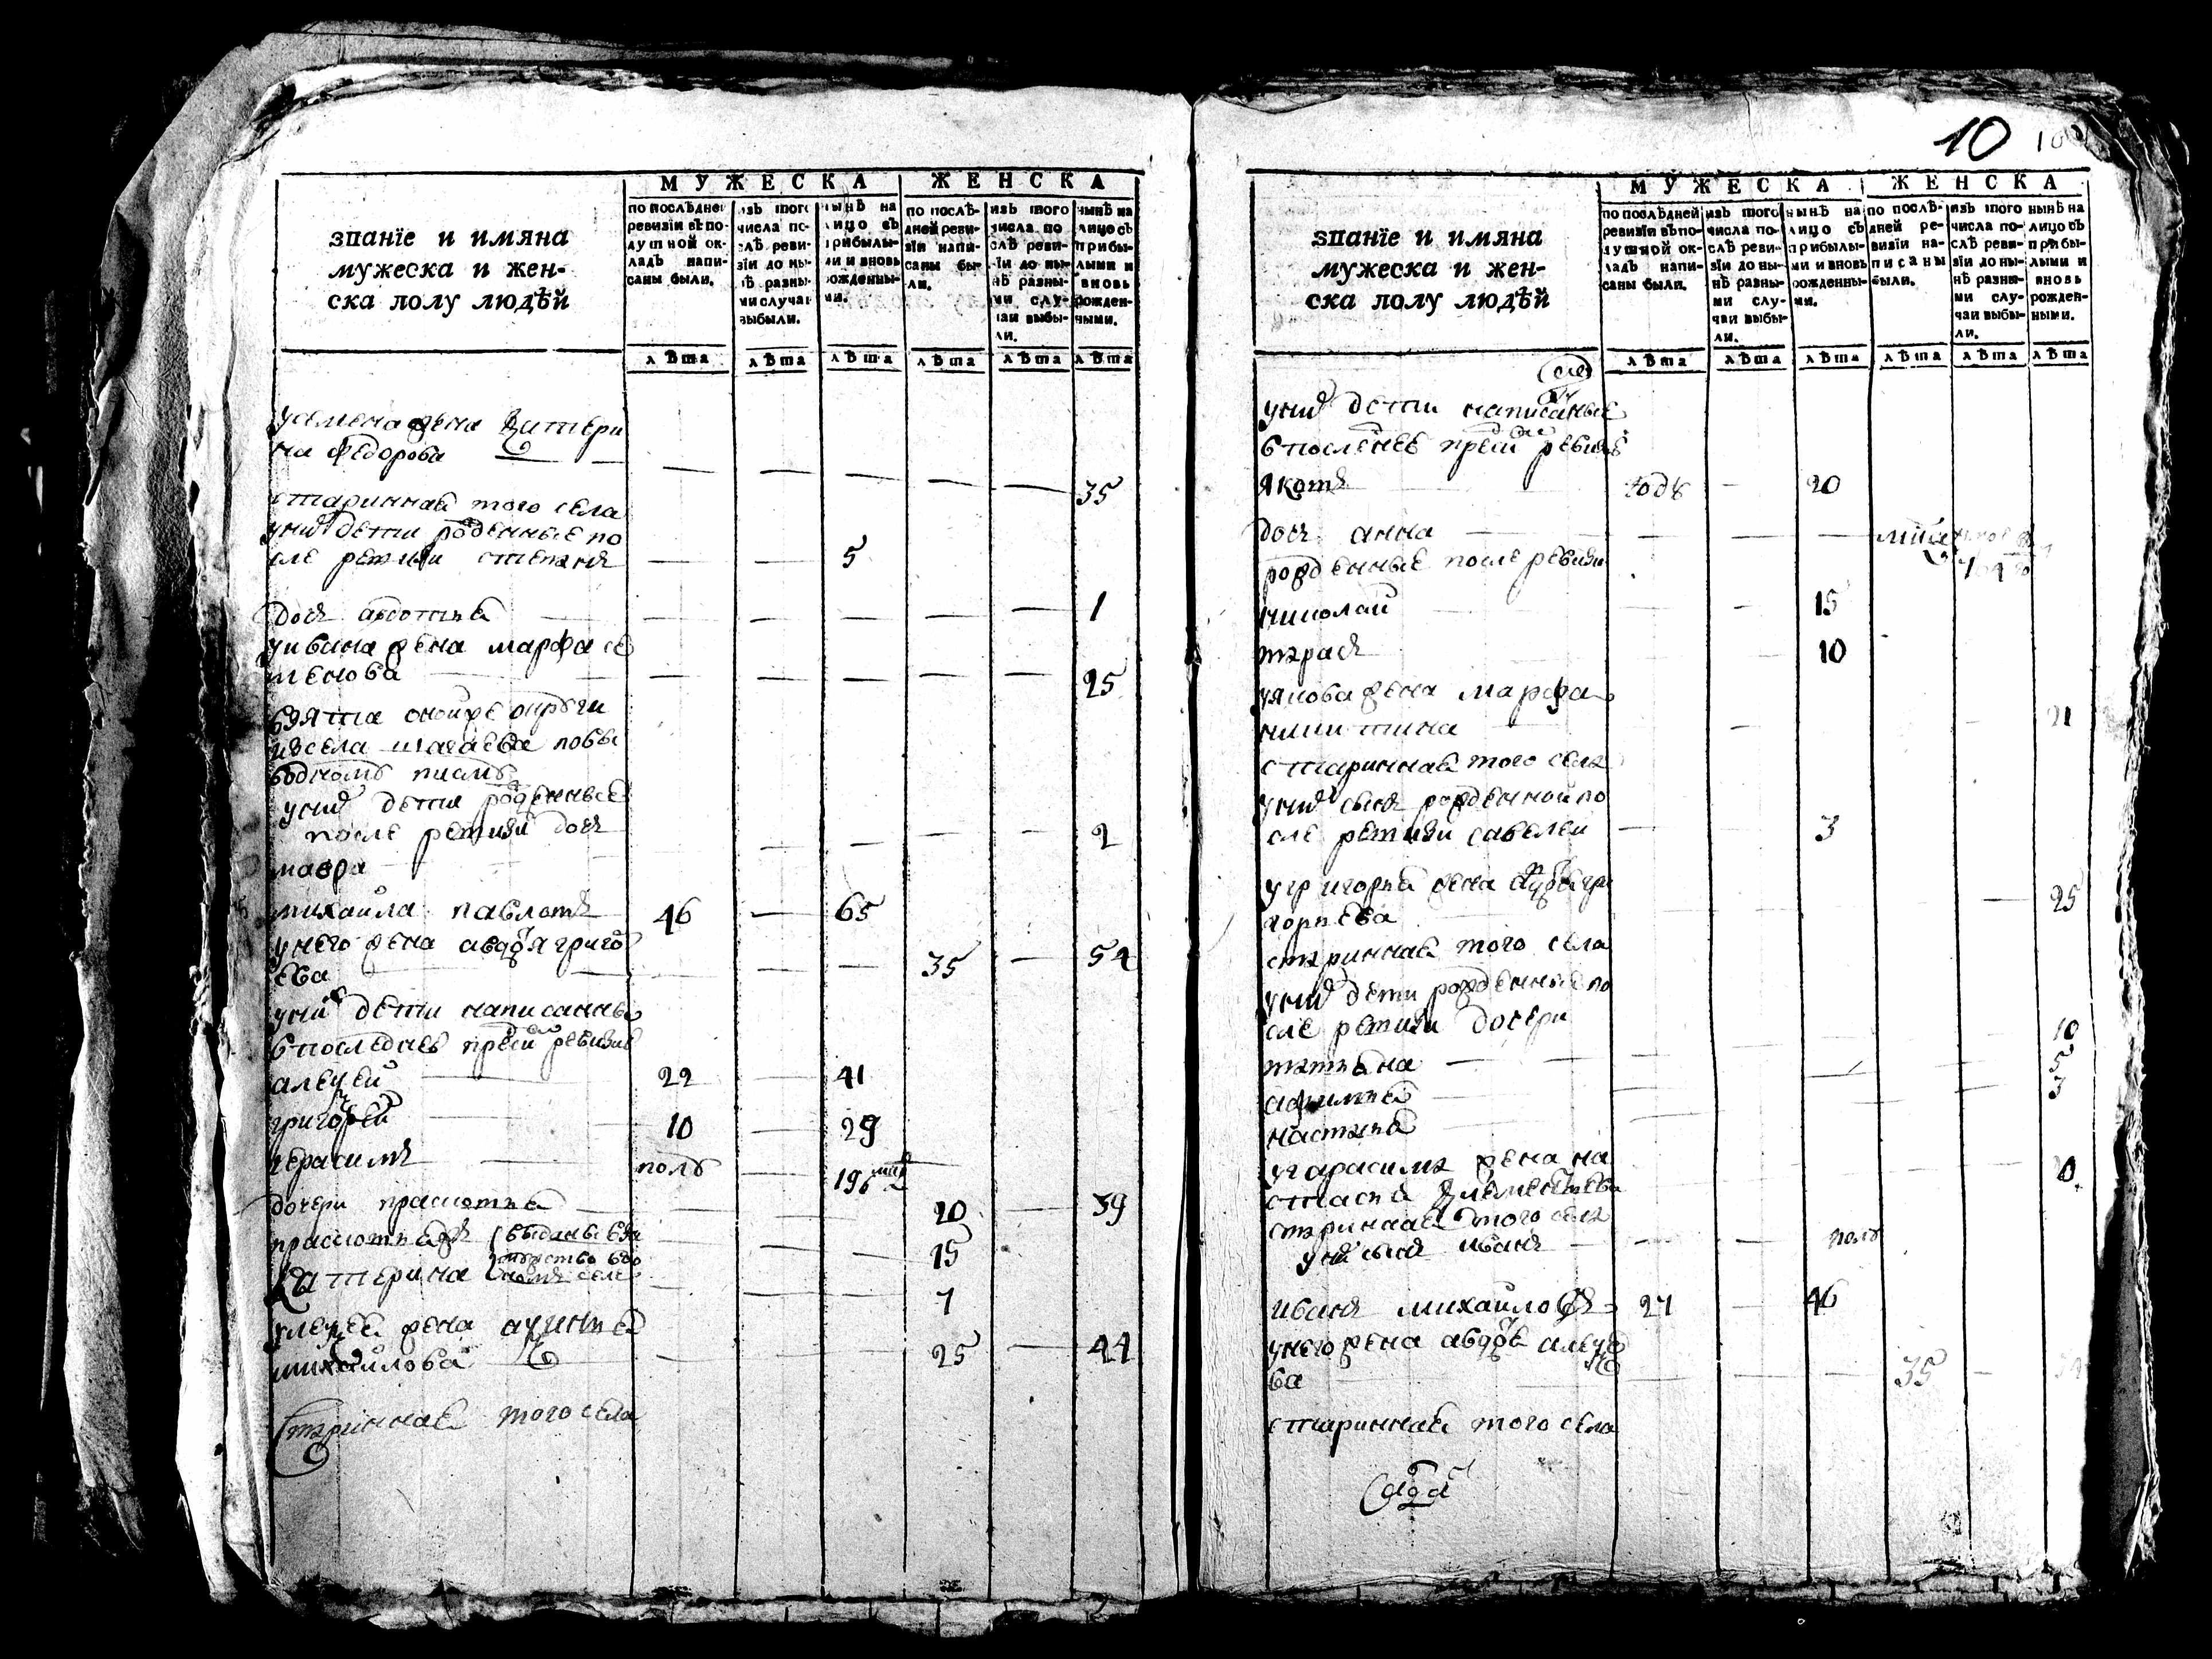 МУЖЕСКА ЖЕНСКА
званїе и имяна
мужеска и жен-
ска полу людѣй
по послѣдней
ревизїи въ по-
душной ок-
ладъ напи-
саны были.
изъ того
числа по-
слѣ реви-
зїи до ны-
нѣ разны-
ми случаи
выбыли.
нынѣ на
лицо съ
прибылы-
ми и вновь
рожденны-
ми.
по послѣ-
дней реви-
зїи напи-
саны бы-
ли.
изъ того
числа по
слѣ реви-
зїи до ны-
нѣ разны-
ми слу-
чаи выбы-
ли.
нынѣ на
лицо съ
прибы-
лыми и
вновь
рожден-
ными.
лѣта лѣта лѣта лѣта лѣта лѣта
у семена жена катери
на федорова 35
стариннаѧ того села
у них дети рожденные по
сле ревизии степанъ 5
дочь авдотья 1
у ивана жена марфа се
менова 25
взята оной же округи
из села по вы
водному писму
у них дети рожденные
после ревизии дочь 2
мавра
михаила павловъ 46 65
у него жена авдотья григо
ева 35 54
у них дети написанные
в последней пред сей ревизие
алексей 22 41
григорей 10 29
герасимъ полъ 19
дочери прасковья 20 39
прасковья жъ выданы в за 15
катерина мужество в 7
у алексея жена аксинья
михайлова 25 44
стариннаѧ того села
10
МУЖЕСКА ЖЕНСКА
званїе и имяна
мужеска и жен-
ска полу людѣй
по послѣдней
ревизїи въ по-
душной ок-
ладъ напи-
саны были.
изъ того
числа по-
слѣ реви-
зїи до ны-
нѣ разны-
ми слу-
чаи выбы-
ли.
нынѣ на
лицо съ
прибылы-
ми и вновь
рожденны-
ми.
по послѣ-
дней ре-
визїи на-
писаны
были.
изъ того
числа по-
слѣ реви-
зїи до ны-
нѣ разны-
ми слу-
чаи выбы-
ли.
нынѣ на
лицо съ
прибы-
лыми и
вновь
рожден-
ными.
лѣта лѣта лѣта лѣта лѣта лѣта
у них дети написанные
в последней пред сей ревизие
яковъ годъ 20
дочь анна
рожденные после ревизии
николай 15
тарасъ 10
у якова жена марфа
никитина 21
стариннаѧ того села
у них сынъ рожденной по
сле ревизии савелей 3
у григорья жена гри
горьева 25
стариннаѧ того села
у них дети рожденные по
сле ревизии дочери 10
татьяна 5
афимья 3
настасья
у гарасима жена на
стасья клементьева 20
стариннаѧ того села
у них сынъ иванъ полъ
иванъ михайловъ 27 46
у него жена авдотья алексе
ва 35
стариннаѧ того села